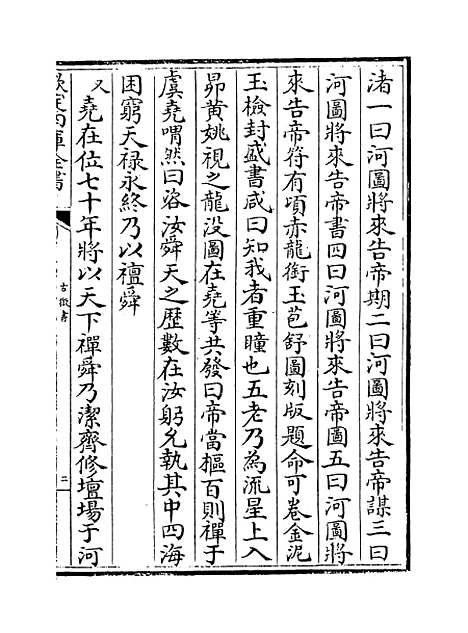 渚一曰河圖將來告帝期二曰河圖將來告帝謀三曰
河圖將來告帝書四曰河圖將來告帝圖五曰河圖將
來告帝符有頃赤龍銜玉苞舒圖刻版題命可卷金泥
玉檢封盛書威曰知我者重瞳也五老乃為流星上入
昴黄姚視之龍没圖在堯等共發曰帝當樞百則禪于
虞堯喟然曰咨汝舜天之歴數在汝躬允執其中四海
困窮天禄永終乃以禪舜
又堯在位七十年將以天下禪舜乃潔齊修壇場于河
欽定四庫全書
古微書
二